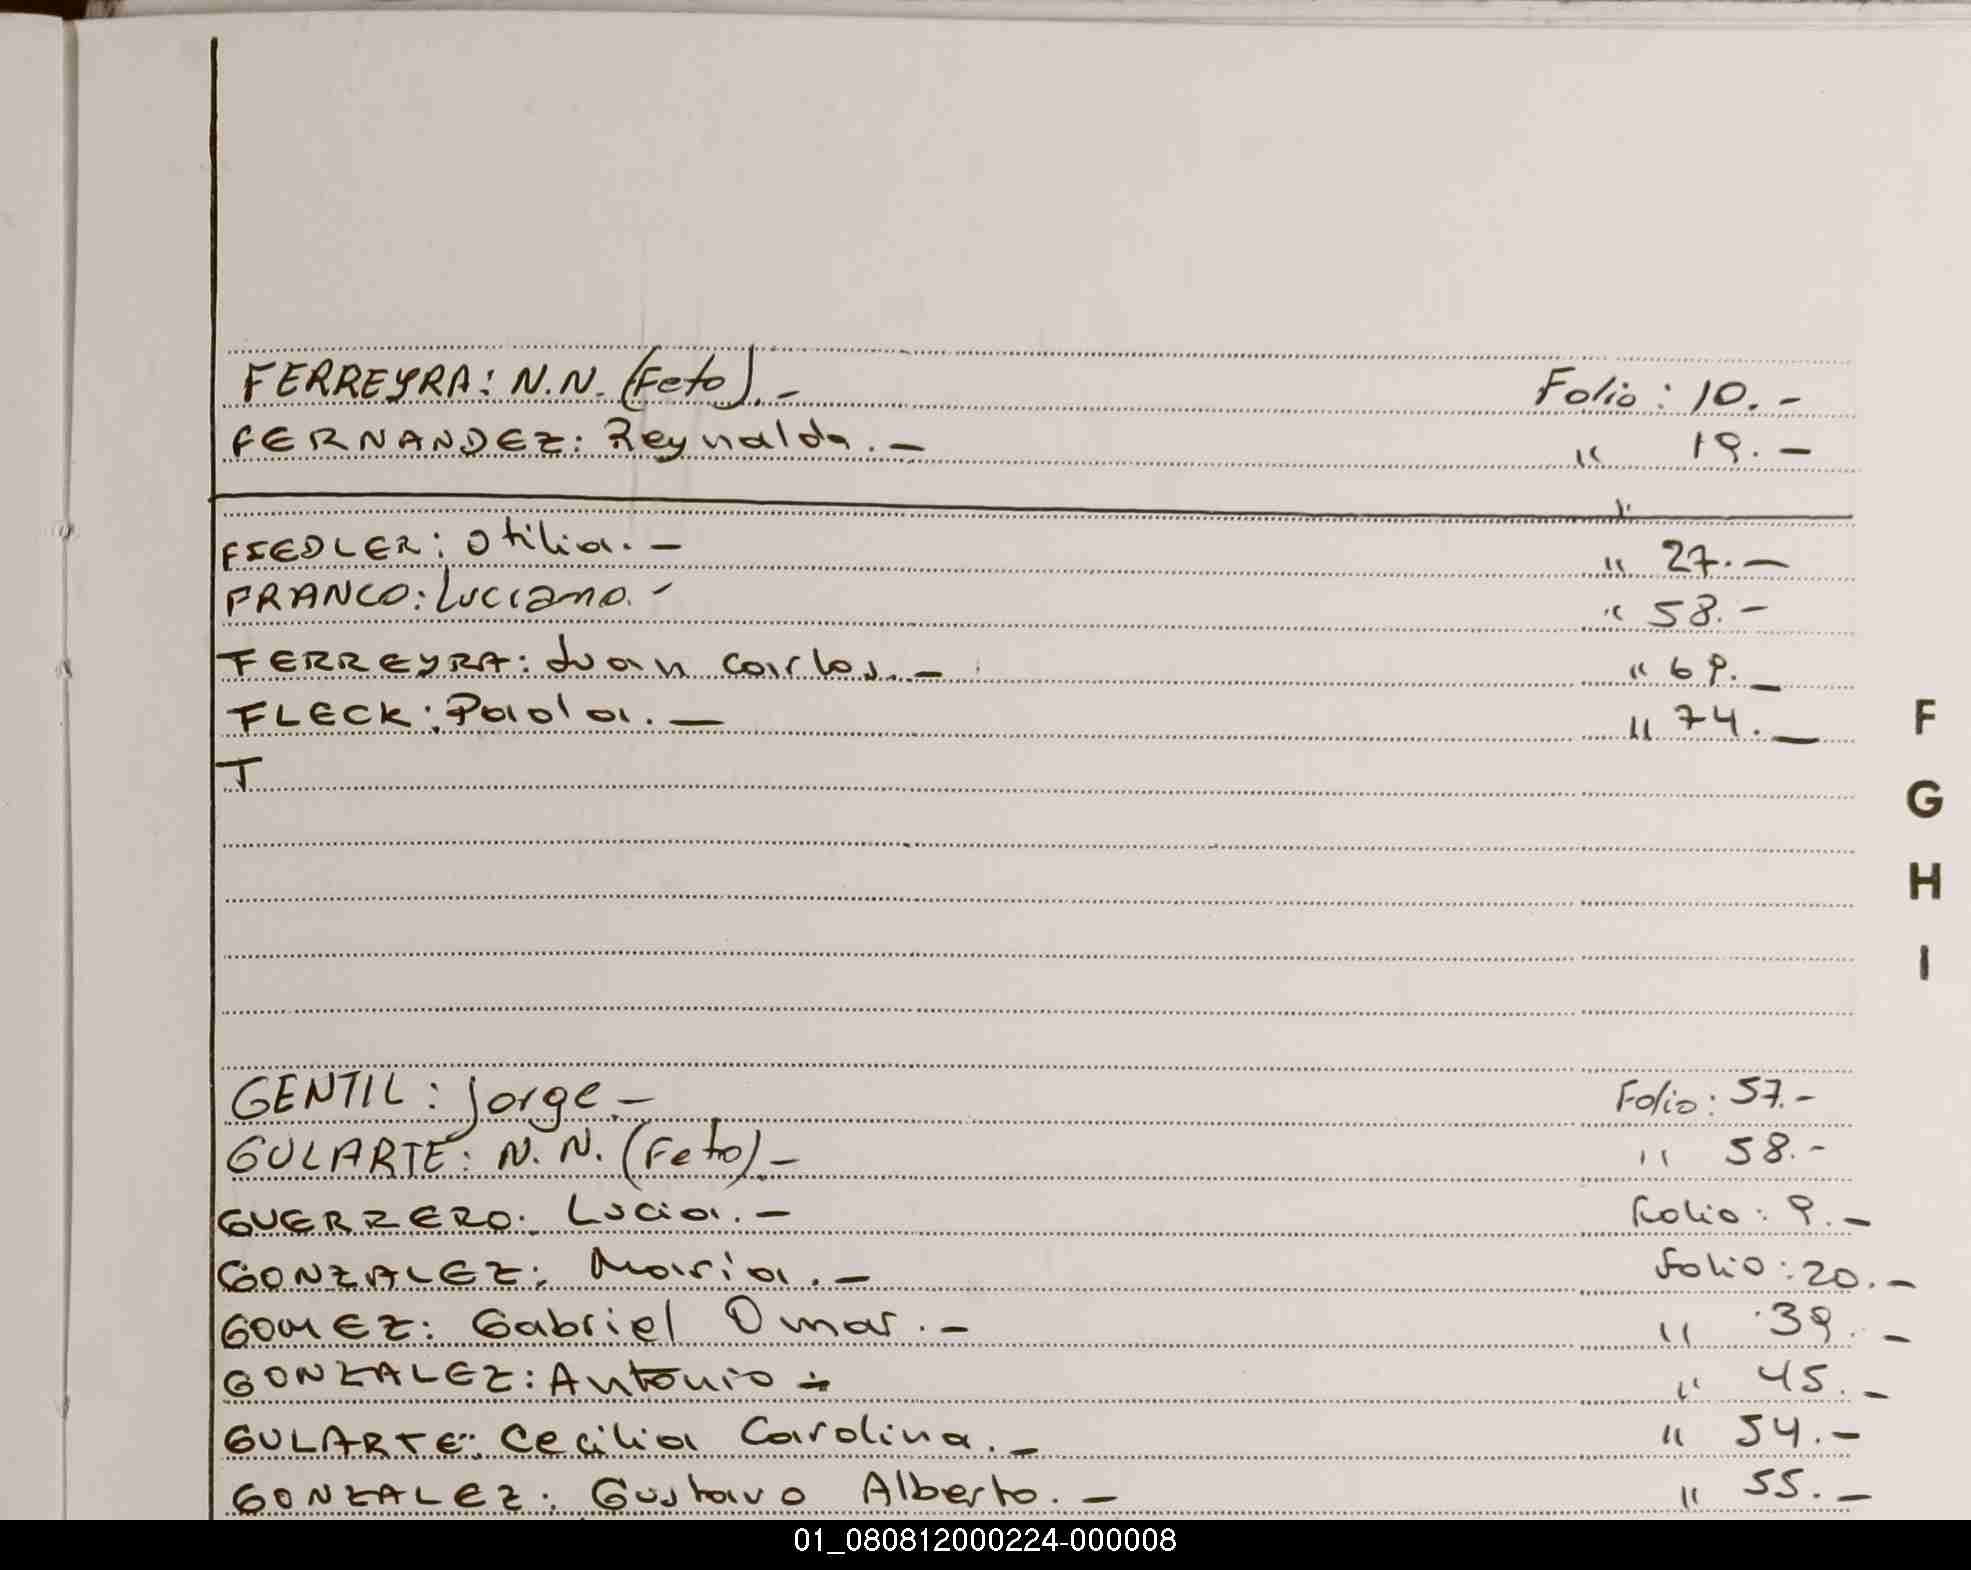 FERREYRA: N.N. (Feto).- Folio: 10.-
FERNANDEZ: Reynalda.- " 19.-
"
FIEDLER: Otilia.- " 27.-
FRANCO: Luciano.- " 58.-
FERREYRA: Juan Carlos.- " 69.-
FLECK: Paola.- " 74.-
T
F
G
H
I
GENTIL: Jorge.- Folio: 57.-
GULARTE: N.N. (Feto).- " 58.-
GUERRERO: Lucia.- Folio: 9.-
GONZALEZ: Maria.- Folio: 20.-
GOMEZ: Gabriel Omar.- " 39.-
GONZALEZ: Antonio.- " 45.-
GULARTE: Cecilia Carolina.- " 54.-
GONZALEZ: Gustavo Alberto.- " 55.-
01_080812000224-000008